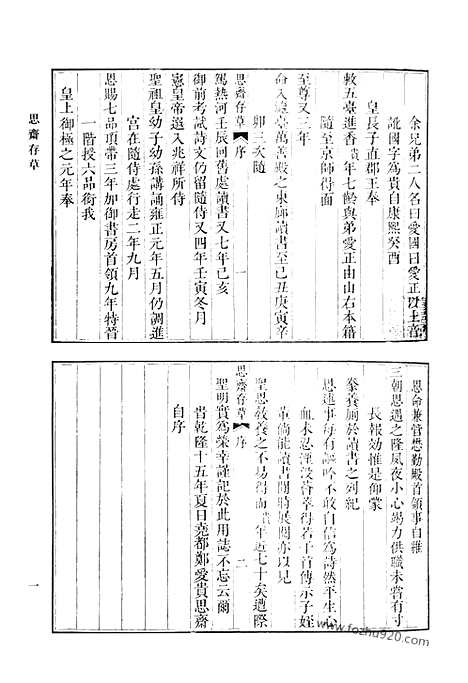 余兄弟二人名曰愛國曰愛正以土音
訛國子為貴自康熙癸酉
皇長子直郡王奉
敕五臺進香積年七齡與弟愛正由山右本籍
隨至京師得面
至尊又三年
命入遠臺萬善殿之東廊讀書至己丑庚寅辛
卯三次隨
思齋存草 序 一
駕熱河壬辰回舊處讀書又七年己亥
御前考試詩文仍留隨侍又四年壬寅冬月
憲皇帝選入兆祥所侍
聖祖皇幼子幼孫講誦雍正元年五月仍調進
宮在隨侍處行走二年九月
恩賜七品頂帶三年加御書房首領九年特晉
一階授六品銜我
皇上御極之元年奉
恩命兼管懋勤殿首領事自維
三朝恩遇之隆夙夜小心竭力供職未嘗有寸
長報効惟是仰蒙
豢養廁於讀書之列紀
恩述事每有謳吟不敢自信為詩然平生心
血未忍湮沒薈萃得若干首傳示子姪
輩倘能讀書閒時展閱亦以見
聖恩敎養之不易得而積年近七十矣遭際
思齋存草 序 二
聖明實為榮幸謹記於此用誌不忘云爾
旹乾隆十五年夏日堯都鄭愛貴思齋
自序
思齋存草
一
www.fozhu920.com